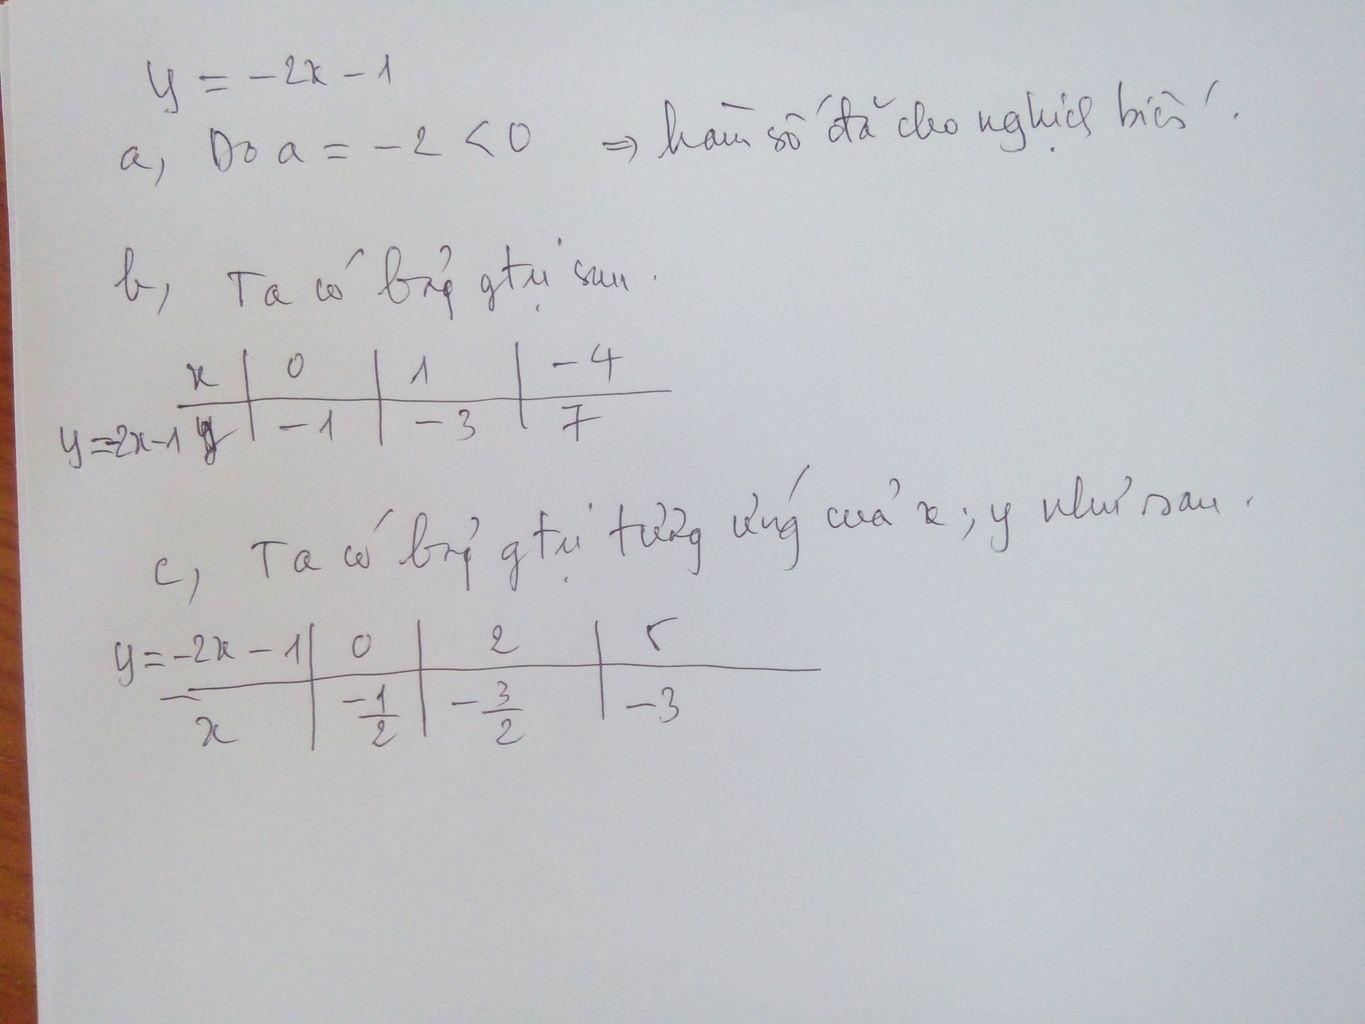 y = -2x - 1
a, Do a = -2 < 0 => hàm số đã cho nghịch biến.
b, Ta có bảng gtrị sau.
x | 0 | 1 | -4
y = -2x-1 y | -1 | -3 | 7
c, Ta có bảng gtrị tương ứng của x; y như sau.
y = -2x - 1 | 0 | 2 | 5
x | -1/2 | -3/2 | -3